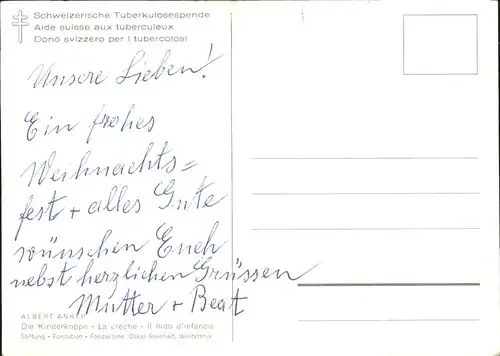 Schweizerische Tuberkulosespende
Aide suisse aux tuberculeux
Dono svizzero per i tubercolosi
Unsere Lieben!
Ein frohes
Weihnachts=
fest + alles Gute
wünschen Euch
nebst herzlichen Grüssen
Mutter + Beat
ALBERT ANKER
Die Kinderkrippe · La crèche · Il nido d'infanzia
Stiftung · Fondation · Fondazione, Oskar Reinhart, Winterthur